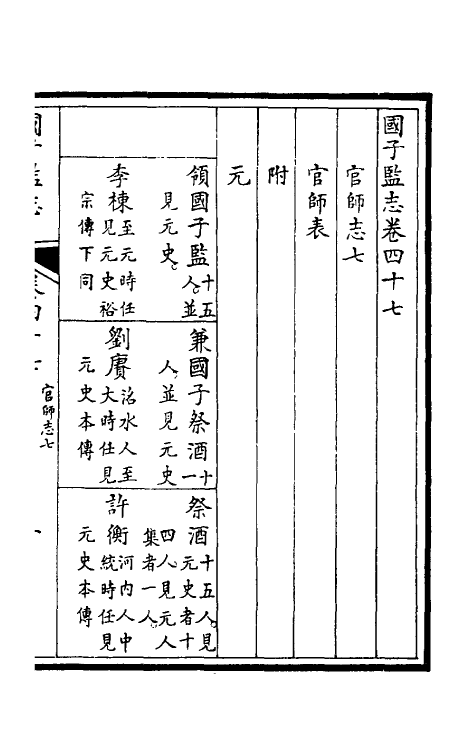 國子監志卷四十七
官師志七
官師表
附
元
領國子監十五人並見元史
李棟至元時任見元史裕宗傳下同
兼國子祭酒十一人並見元史
劉賡洺水人至大時任見元史本傳
祭酒十五人見元史者十四人見元人集者一人
許衡河內人中統時任見元史本傳
官師志七
一